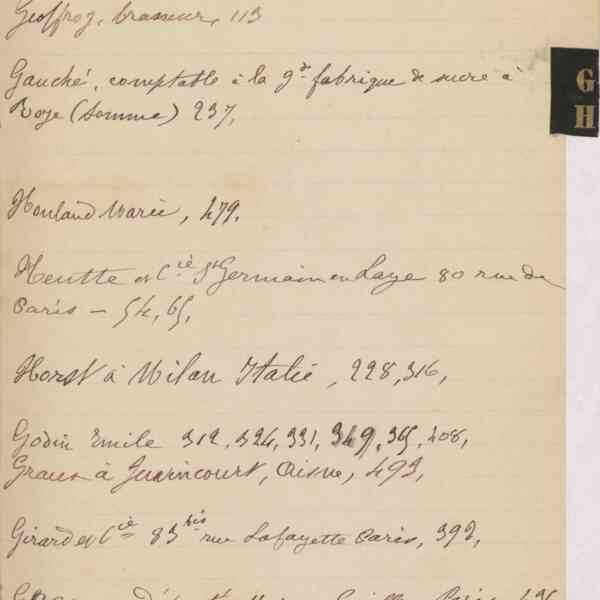 Geoffroy, brasseur, 113
Gauché, comptable à la gde fabrique de sucre à
Roye (Somme) 237,
G
H
Houland Marie, 479.
Heutte et Cie St Germain en Laye 80 rue de
Paris – 54, 65,
Horst à Milan Italie, 228, 316,
Godin Emile 312, 324, 331, 349, 365, 408,
Graux à Guerincourt, Aisne, 493,
Girard et Cie 83 bis rue Lafayette Paris, 392,
Paris,